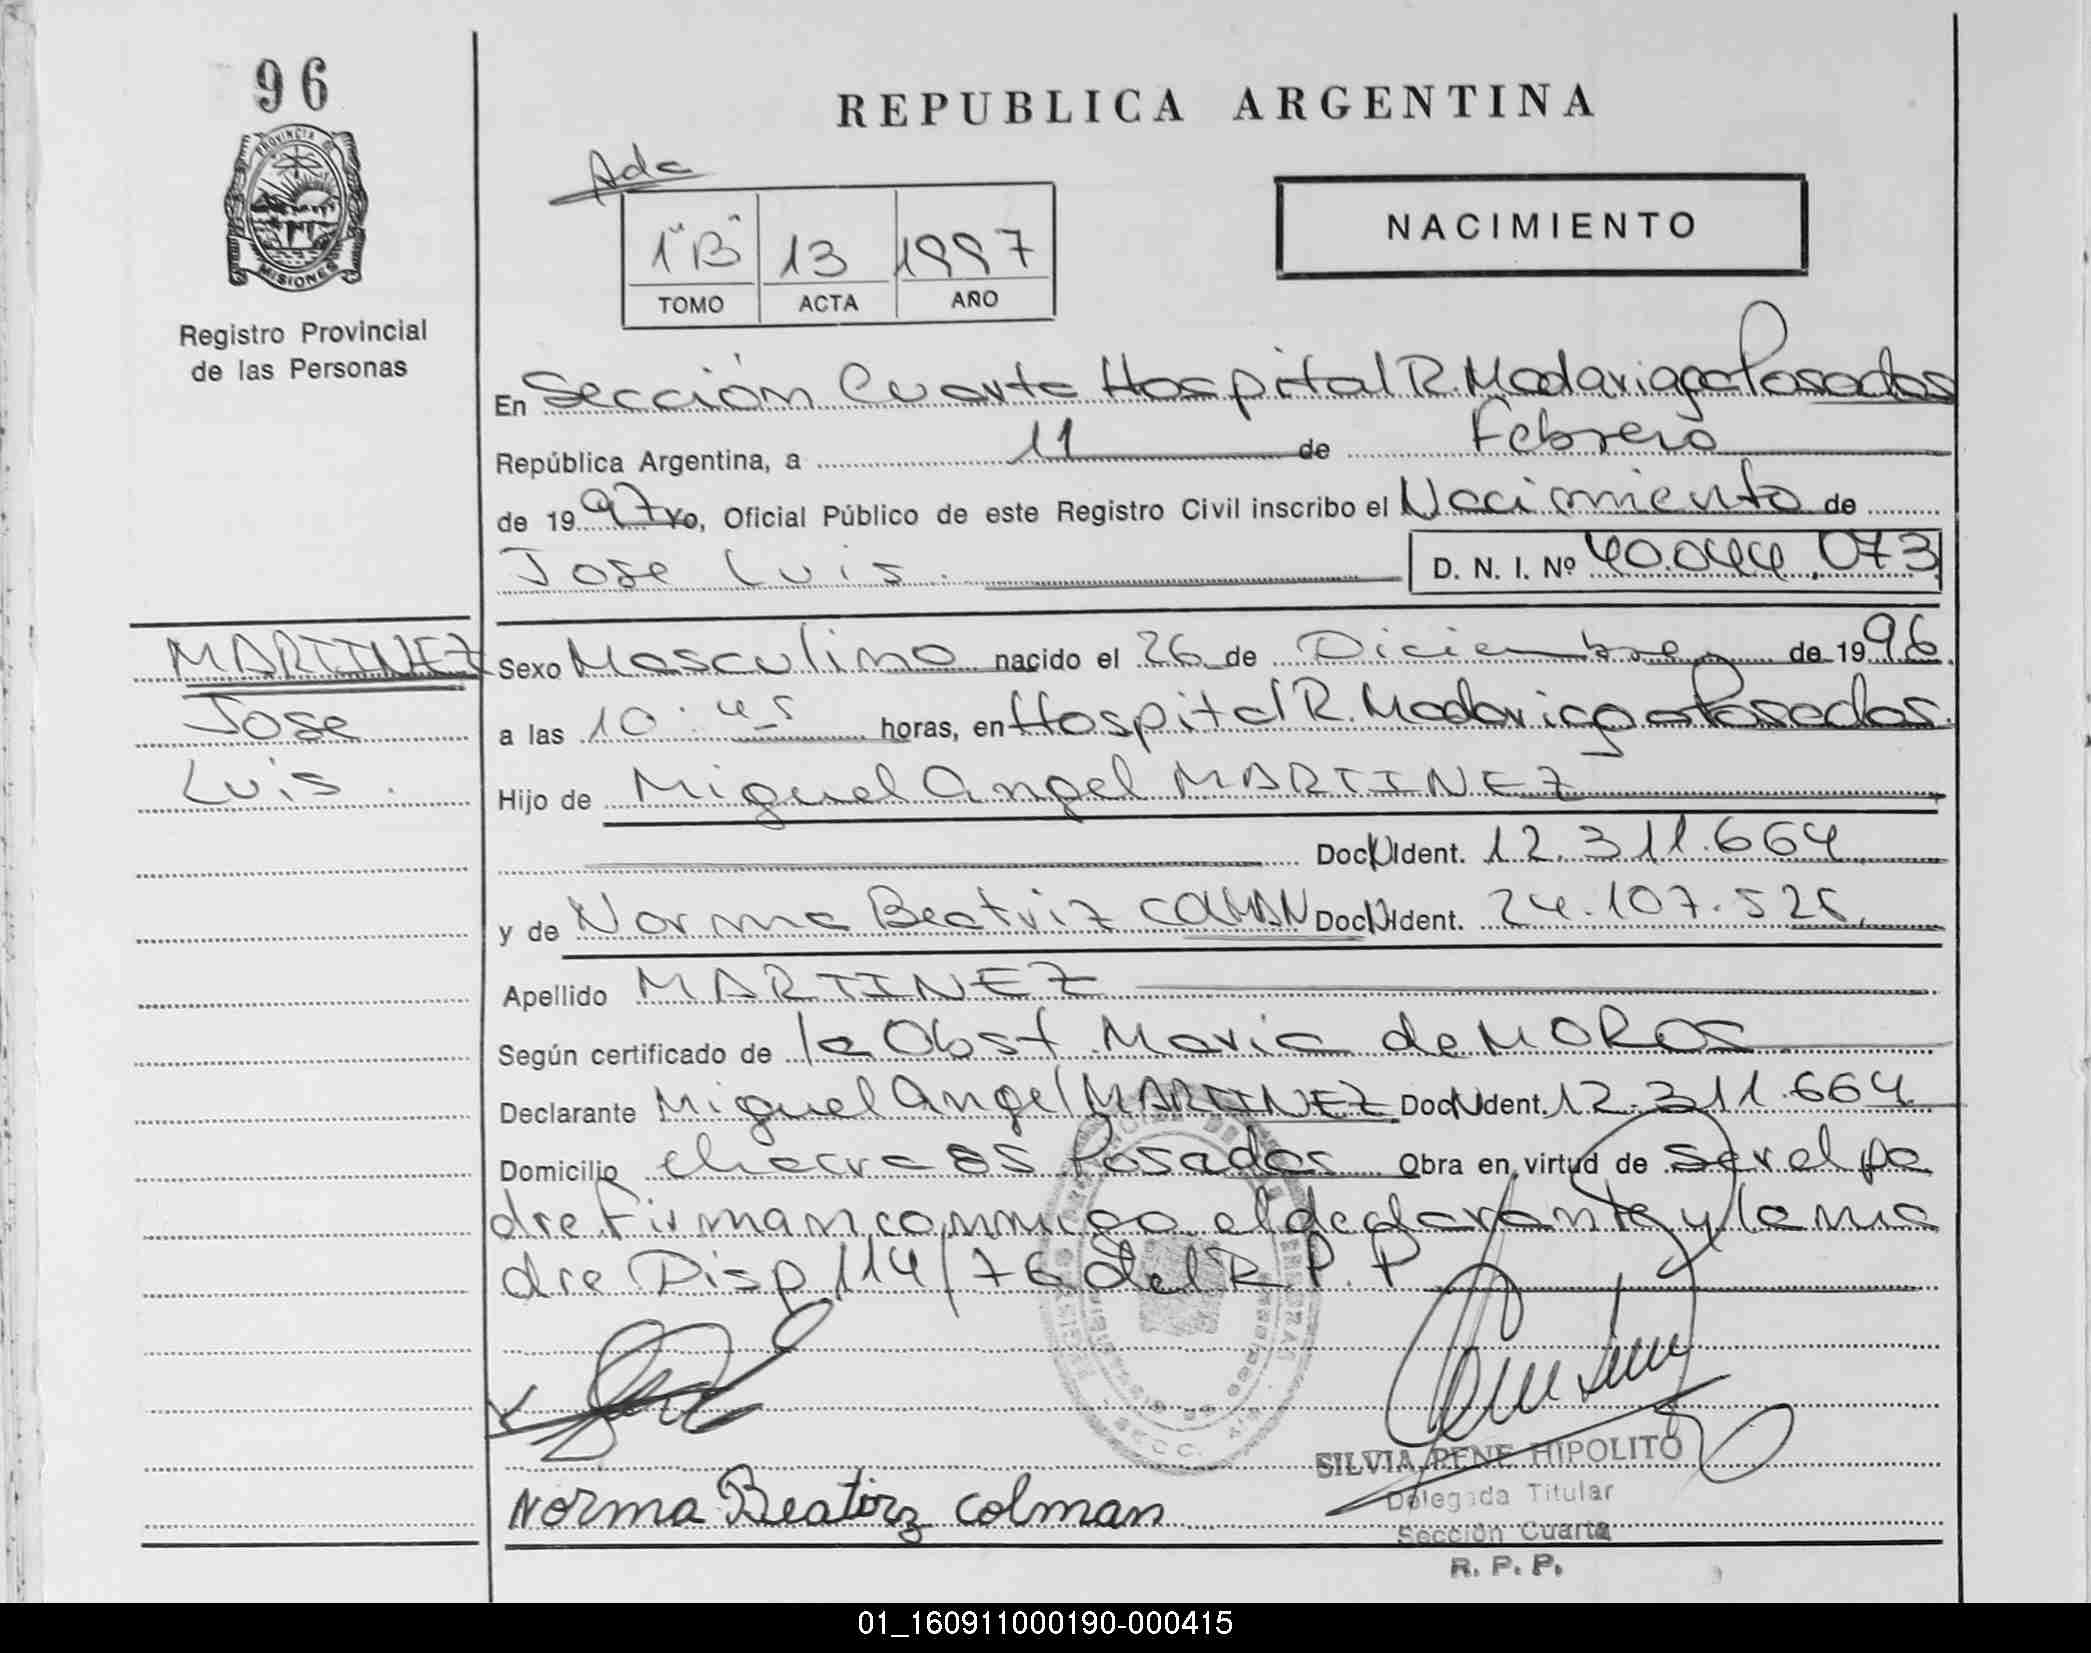 96
REPUBLICA ARGENTINA
PROVINCIA DE
MISIONES
Registro Provincial
de las Personas
Ada
1º"B" 13 1997
TOMO ACTA AÑO
NACIMIENTO
En Sección Cuarta Hospital R. Madariaga Posadas
República Argentina, a 11 de Febrero
de 1997 Yo, Oficial Público de este Registro Civil inscribo el Nacimiento de
Jose Luis. D. N. I. Nº 40.044.073
MARTINEZ
Jose
Luis.
Sexo Masculino nacido el 26 de Diciembre de 1996.
a las 10:45 horas, en Hospital R. Madariaga Posadas.
Hijo de Miguel Angel MARTINEZ
Doc. N Ident. 12.311.664
y de Norma Beatriz COLMAN Doc. N Ident. 24.107.526
Apellido MARTINEZ
Según certificado de la Obst Maria de MOROS
Declarante Miguel Angel MARTINEZ Doc. N Ident. 12.311.664
Domicilio chacra 85 Posadas Obra en virtud de ser el pa
dre firman conmigo el declarante y la ma
dre Disp 114/76 del R. P. P
SECC. 4ta
Norma Beatirz colman
SILVIA RENE HIPOLITO
Delegada Titular
Sección Cuarta
R. P. P.
01_160911000190-000415